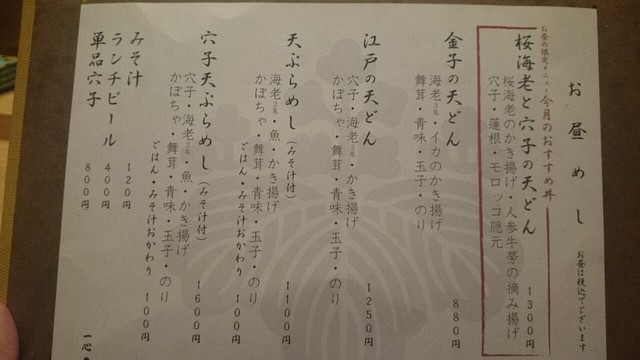 お昼めし
お昼は税込でございます
お昼の限定メニュー 今月のおすすめ丼
桜海老と穴子の天どん
桜海老のかき揚げ・人参牛蒡の摘み揚げ
穴子・蓮根・モロッコ隠元
1300円
金子の天どん
海老2尾・イカのかき揚げ
舞茸・青味・玉子・のり
880円
江戸の天どん
穴子・海老2尾・かき揚げ
かぼちゃ・舞茸・青味・玉子・のり
1250円
天ぷらめし(みそ汁付)
海老2尾・魚・かき揚げ
かぼちゃ・舞茸・青味・玉子・のり
1100円
ごはん・みそ汁おかわり 100円
穴子天ぷらめし(みそ汁付)
穴子・海老2尾・魚・かき揚げ
かぼちゃ・舞茸・青味・玉子・のり
1600円
ごはん・みそ汁おかわり 100円
みそ汁 120円
ランチビール 400円
単品穴子 800円